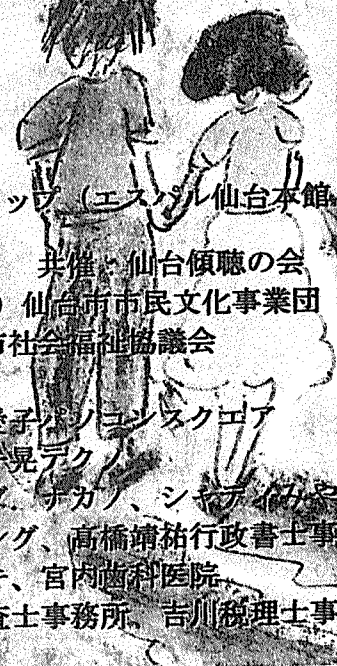 ップ（エスパル仙台本館
共催：仙台傾聴の会
）仙台市市民文化事業団
市社会福祉協議会
子パソコンスクエア
晃テクノ
ナカノ、シャディみや
ング、髙橋靖祐行政書士事
、宮内歯科医院
査士事務所、吉川税理士事